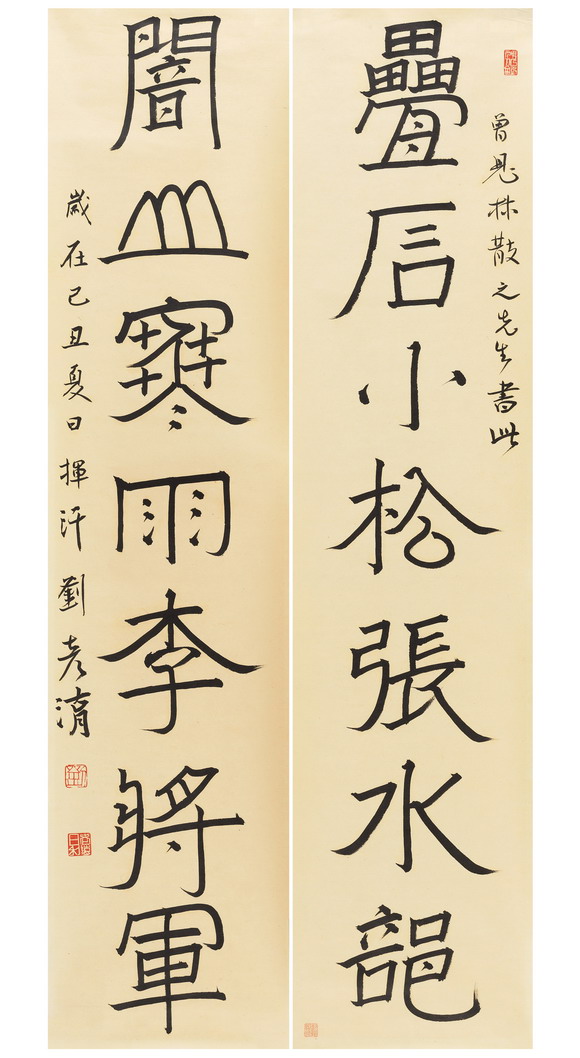 曾見林散之先生書此
疊石小松張水部
闇山寒雨李將軍
歲在己丑夏日揮汗劉彥湖